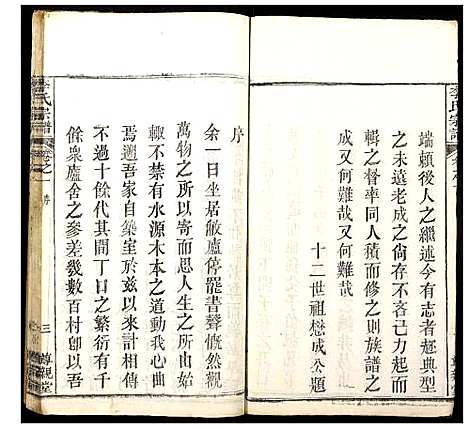 李氏宗譜
端賴後人之繼述今有志者趂典型
之未遠老成之尙存不客己力以
輯之督率同人積而修之則族譜之
成又何難哉又何難哉
十二世祖懋成公題
序
余一日坐居敝廬停罷書聲慨然觀
萬物之所以寄而思人生之所始
輙不禁有水源木本之道動我心曲
焉遡吾家自築室於玆以來計相傳
不過十餘代其間丁口之繁衍有千
餘衆廬舍之參差幾數百村卽以吾
李氏宗譜
卷之一
序
三
尊親堂